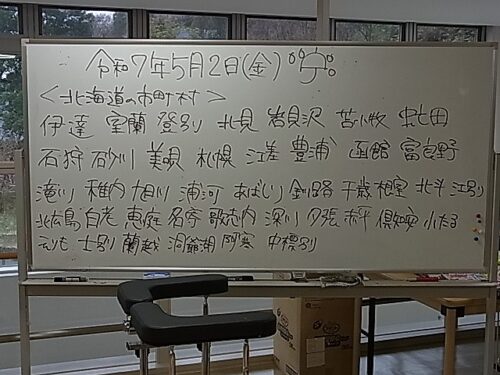 令和7年5月2日(金)
<北海道の市町村>
伊達 室蘭 登別 北見 岩見沢 苫小牧 虻田
石狩 砂川 美唄 札幌 江差 豊浦 函館 富良野
滝川 稚内 旭川 浦河 あばしり 釧路 千歳 根室 北斗 江別
北広島 白老 恵庭 名寄 歌志内 深川 夕張 赤平 倶知安 小たる
えりも 士別 蘭越 洞爺湖 阿寒 中標別